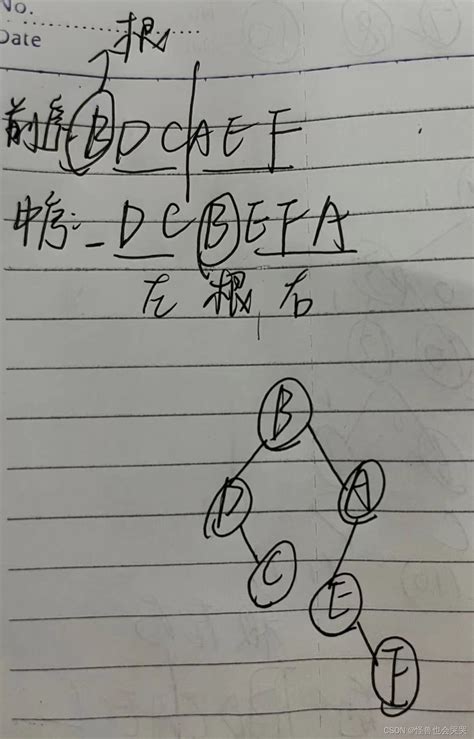 No.
Date
根
前序:B D C A E F
中序:D C B E F A
左 根 右
B
D A
C E
F
CSDN @怪兽也会哭哭